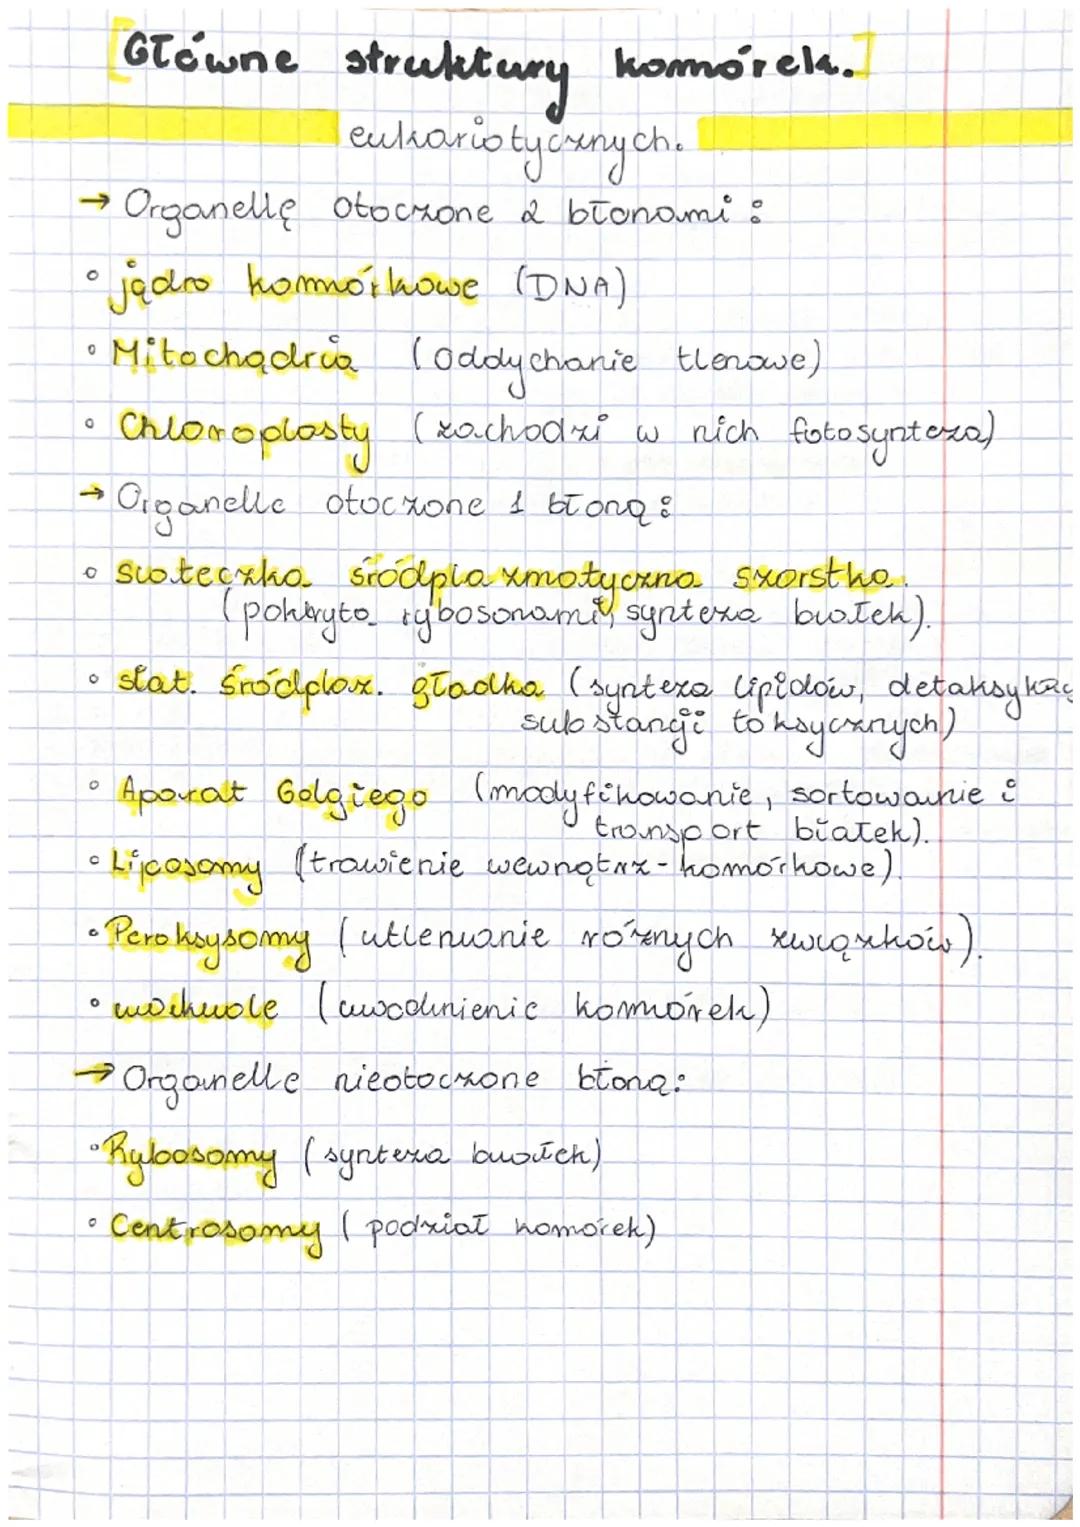 [Główne struktury komórek.]
eukariotycznych.
→ Organellę otoczone 2 błonami :
° jądro komórkowe (DNA)
° Mitochądria (oddychanie tlenowe)
° Chloroplasty (zachodzi w nich fotosynteza)
→ Organelle otoczone 1 błoną :
° siateczka śródplazmatyczna szorstka.
(pokryta rybosonami, synteza białek).
° siat. śródplaz. gładka (synteza lipidów, detaksykacj
substancji toksycznych)
° Aparat Golgiego (modyfikowanie, sortowanie i
transport białek).
° Liposomy (trawienie wewnątrz-komórkowe).
° Peroksysomy (utlenianie różnych związków).
° wakuole (uwodnienie komórek)
→ Organelle nieotoczone błoną:
° Rybosomy (synteza białek)
° Centrosomy (podział komórek)